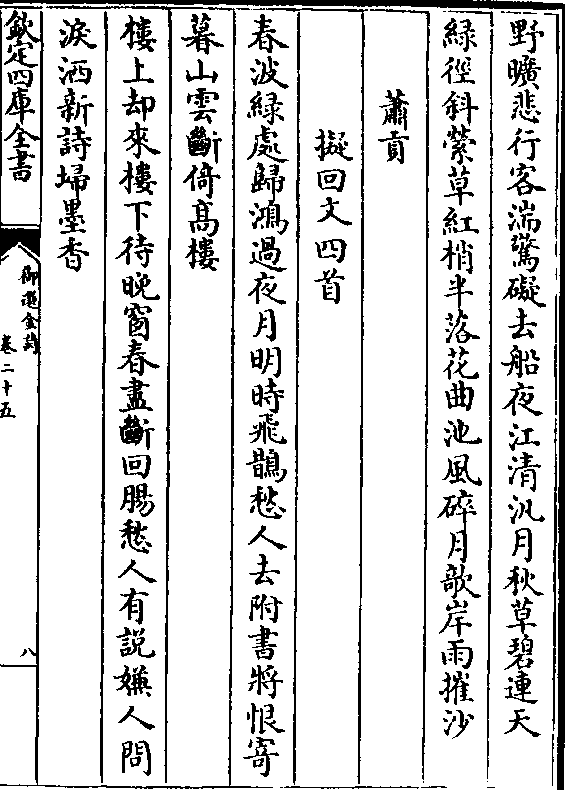 野曠悲行客湍驚礙去船夜江清汎月秋草碧連天
綠徑斜縈草紅梢半落花曲池風碎月欹岸雨摧沙
蕭貢
擬回文四首
春波綠處歸鴻過夜月明時飛鵲愁人去附書將恨寄
暮山雲斷倚髙樓
樓上却來樓下待晚窗春盡斷回腸愁人有說嫌人問
淚洒新詩埽墨香
欽定四庫全書
御選金詩
卷二十五
八